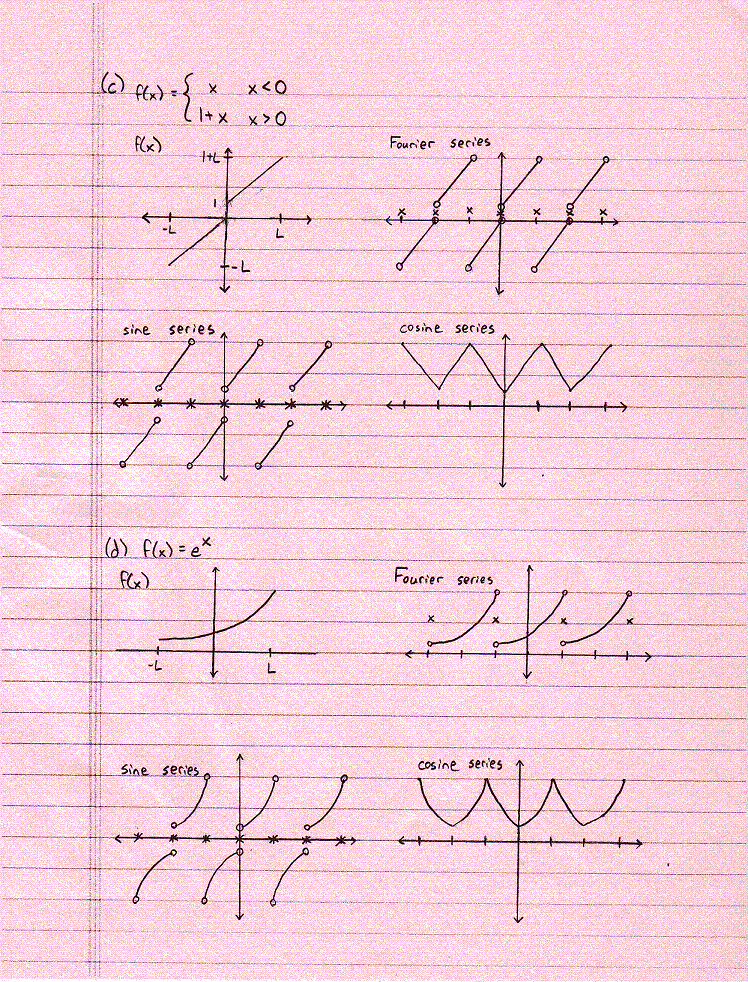 (c) f(x) = { x x<0
1+x x>0
f(x) Fourier series
1+L
1
-L L
-L
sine series cosine series
(d) f(x) = e^x
f(x) Fourier series
-L L
sine series cosine series